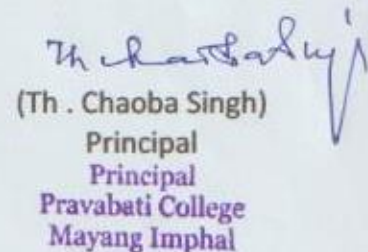 Th Chaoba Singh
(Th . Chaoba Singh)
Principal
Principal
Pravabati College
Mayang Imphal